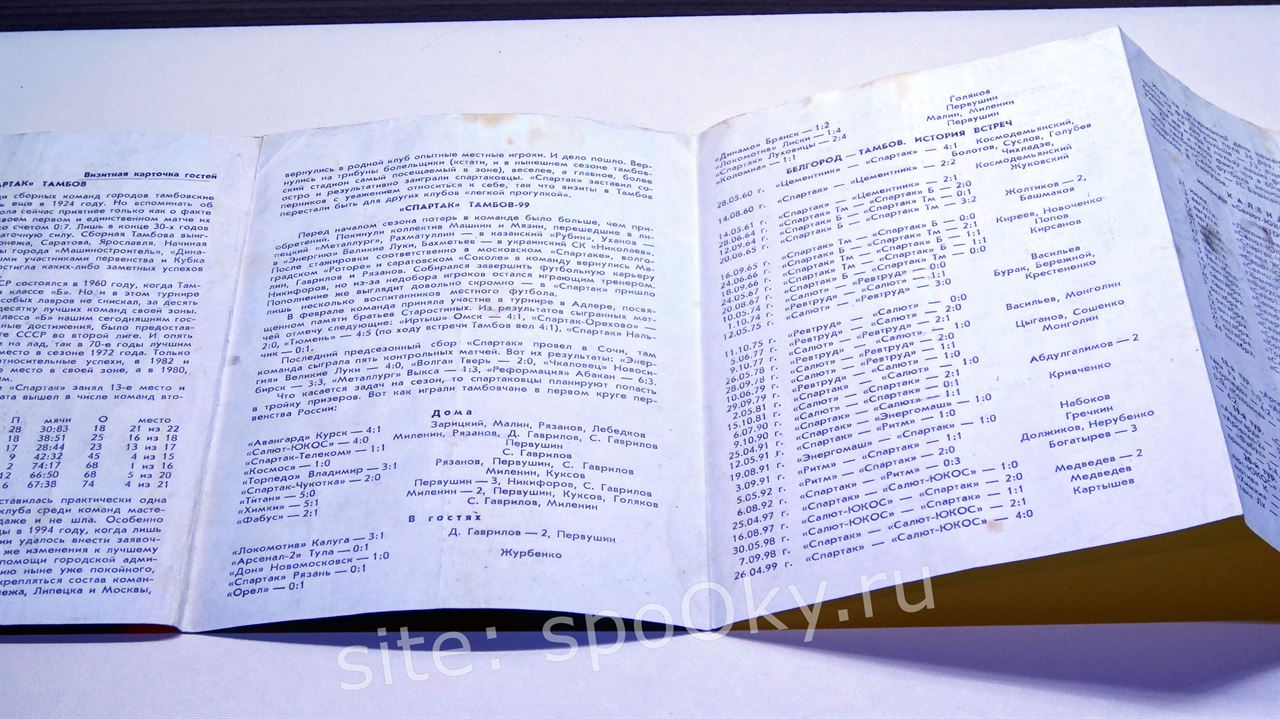 Визитная карточка гостей
«СПАРТАК» ТАМБОВ
ди сборных команд городов тамбовские
ь еще в 1924 году. Но вспоминать об
ола сейчас приятнее только как о факте
своем первом и единственном матче их
со счетом 0:7. Лишь в конце 30-х годов
аточную силу. Сборная Тамбова выиг-
онежа, Саратова, Ярославля. Начиная
ы города «Машиностроитель», «Дина-
ми участниками первенства и Кубка
остигла каких-либо заметных успехов
СР состоялся в 1960 году, когда Там-
в классе «Б». Но и в этом турнире
особых лавров не снискал, за десять
десятку лучших команд своей зоны.
класса «Б» нашим сегодняшним гос-
ные достижения, было предостав-
те СССР во второй лиге. И опять
л на лад, так в 70-е годы лучшим
место в сезоне 1972 года. Только
тносительные успехи, в 1982 и
е место в своей зоне, а в 1980,
им.
е «Спартак» занял 13-е место и
ата вышел в число команд вто-
П мячи О место
28 30:83 18 21 из 22
18 38:51 25 16 из 18
17 28:44 23 13 из 17
9 42:32 45 4 из 15
2 74:17 68 1 из 16
12 66:50 68 5 из 20
6 67:38 74 4 из 21
ставилась практически одна
клуба среди команд масте-
даже и не шла. Особенно
ды в 1994 году, когда лишь
ии удалось внести заявоч-
же изменения к лучшему
помощи городской адми-
ию ныне уже покойного,
крепляться состав коман-
нежа, Липецка и Москвы,
вернулись в родной клуб опытные местные игроки. И дело пошло. Вер-
нулись на трибуны болельщики (кстати, и в нынешнем сезоне тамбов-
ский стадион самый посещаемый в зоне), веселее, а главное, более
остро и результативно заиграли спартаковцы. «Спартак» заставил со-
перников с уважением относиться к себе, так что визиты в Тамбов
перестали быть для других клубов «легкой прогулкой».
«СПАРТАК» ТАМБОВ-99
Перед началом сезона потерь в команде было больше, чем при-
обретений. Покинули коллектив Машнин и Мязин, перешедшие в ли-
пецкий «Металлург», Рахматуллин — в казанский «Рубин», Уханов —
в «Энергию» Великие Луки, Бахметьев — в украинский СК «Николаев».
После стажировки соответственно в московском «Спартаке», волго-
градском «Роторе» и саратовском «Соколе» в команду вернулись Ма-
лин, Гаврилов и Рязанов. Собирался завершить футбольную карьеру
Никифоров, но из-за недобора игроков остался играющим тренером.
Пополнение же выглядит довольно скромно — в «Спартак» пришло
лишь несколько воспитанников местного футбола.
В феврале команда приняла участие в турнире в Адлере, посвя-
щенном памяти братьев Старостиных. Из результатов сыгранных мат-
чей отмечу следующие: «Иртыш» Омск — 4:1, «Спартак-Орехово» —
2:0, «Тюмень» — 4:5 (по ходу встречи Тамбов вел 4:1), «Спартак» Наль-
чик — 0:1.
Последний предсезонный сбор «Спартак» провел в Сочи, там
команда сыграла пять контрольных матчей. Вот их результаты: «Энер-
гия» Великие Луки — 4:0, «Волга» Тверь — 2:0, «Чкаловец» Новоси-
бирск — 3:3, «Металлург» Выкса — 1:3, «Реформация» Абакан — 6:3.
Что касается задач на сезон, то спартаковцы планируют попасть
в тройку призеров. Вот как играли тамбовчане в первом круге пер-
венства России:
Дома
«Авангард» Курск — 4:1 Зарицкий, Малин, Рязанов, Лебедков
«Салют-ЮКОС» — 4:0 Миленин, Рязанов, Д. Гаврилов, С. Гаврилов
«Спартак-Телеком» — 1:1 Первушин
«Космос» — 1:0 С. Гаврилов
«Торпедо» Владимир — 3:1 Рязанов, Первушин, С. Гаврилов
«Спартак-Чукотка» — 2:0 Миленин, Куксов
«Титан» — 5:0 Первушин — 3, Никифоров, С. Гаврилов
«Химки» — 5:1 Миленин — 2, Первушин, Куксов, Голяков
«Фабус» — 2:1 С. Гаврилов, Миленин
В гостях
«Локомотив» Калуга — 3:1 Д. Гаврилов — 2, Первушин
«Арсенал-2» Тула — 0:1
«Дон» Новомосковск — 1:0 Журбенко
«Спартак» Рязань — 0:1
«Орел» — 0:1
«Динамо» Брянск — 1:2 Голяков
«Локомотив» Лиски — 1:4 Первушин
«Спартак» Луховицы — 2:4 Малин, Миленин
«Коломна» — 1:1 Первушин
БЕЛГОРОД — ТАМБОВ. ИСТОРИЯ ВСТРЕЧ
28.05.60 г. «Цементник» — «Спартак» — 4:1 Космодемьянский,
Болотов, Суслов, Голубев
14.08.60 г. «Спартак» — «Цементник» — 2:2 Чихладзе,
Космодемьянский
14.05.61 г. «Спартак» — «Цементник» — 2:1 Жуковский
28.04.64 г. «Спартак» Тм — «Спартак» Б — 2:0
12.09.64 г. «Спартак» Б — «Спартак» Тм — 0:1
20.09.65 г. «Спартак» Б — «Спартак» Тм — 3:2 Жолтиков — 2,
Башмаков
16.09.65 г. «Спартак» Тм — «Спартак» Б — 0:0
24.06.66 г. «Спартак» Б — «Спартак» Тм — 2:1 Киреев, Новоченко
18.09.66 г. «Спартак» Тм — «Спартак» Б — 1:1 Попов
24.05.67 г. «Спартак» Тм — «Спартак» Б — 1:1 Кирсанов
20.08.67 г. «Спартак» Б — «Спартак» Тм — 0:0
10.05.74 г. «Салют» — «Ревтруд» — 1:0 Васильев
1.10.74 г. «Ревтруд» — «Салют» — 0:0
12.05.75 г. «Салют» — «Ревтруд» — 3:0 Бурак, Бережной,
Крестененко
11.10.75 г. «Ревтруд» — «Салют» — 0:0
9.06.77 г. «Ревтруд» — «Салют» — 2:0
9.10.77 г. «Салют» — «Ревтруд» — 2:1 Васильев, Монголин
28.05.78 г. «Ревтруд» — «Салют» — 0:0
26.09.78 г. «Салют» — «Ревтруд» — 2:1 Цыганов, Сошенко
10.06.79 г. «Салют» — «Ревтруд» — 1:1 Монголин
29.09.79 г. «Ревтруд» — «Салют» — 1:0
2.05.81 г. «Спартак» — «Салют» — 1:0
15.10.81 г. «Салют» — «Спартак» — 2:1 Абдулгалимов — 2
6.07.90 г. «Салют» — «Спартак» — 0:1
9.10.90 г. «Спартак» — «Салют» — 1:1 Кривченко
25.04.91 г. «Спартак» — «Энергомаш» — 1:0
12.05.91 г. «Спартак» — «Ритм» — 1:0
19.08.91 г. «Энергомаш» — «Спартак» — 1:0 Набоков
3.09.91 г. «Ритм» — «Спартак» — 1:1 Гречкин
5.05.92 г. «Ритм» — «Спартак» — 2:0 Должиков, Нерубенко
6.08.92 г. «Спартак» — «Ритм» — 0:3 Богатырев — 3
25.04.97 г. «Спартак» — «Салют-ЮКОС» — 1:0
16.08.97 г. «Салют-ЮКОС» — «Спартак» — 2:0 Медведев — 2
30.05.98 г. «Салют-ЮКОС» — «Спартак» — 1:1 Медведев
7.09.98 г. «Спартак» — «Салют-ЮКОС» — 2:1 Картышев
26.04.99 г. «Спартак» — «Салют-ЮКОС» — 4:0
site: spoOky.ru